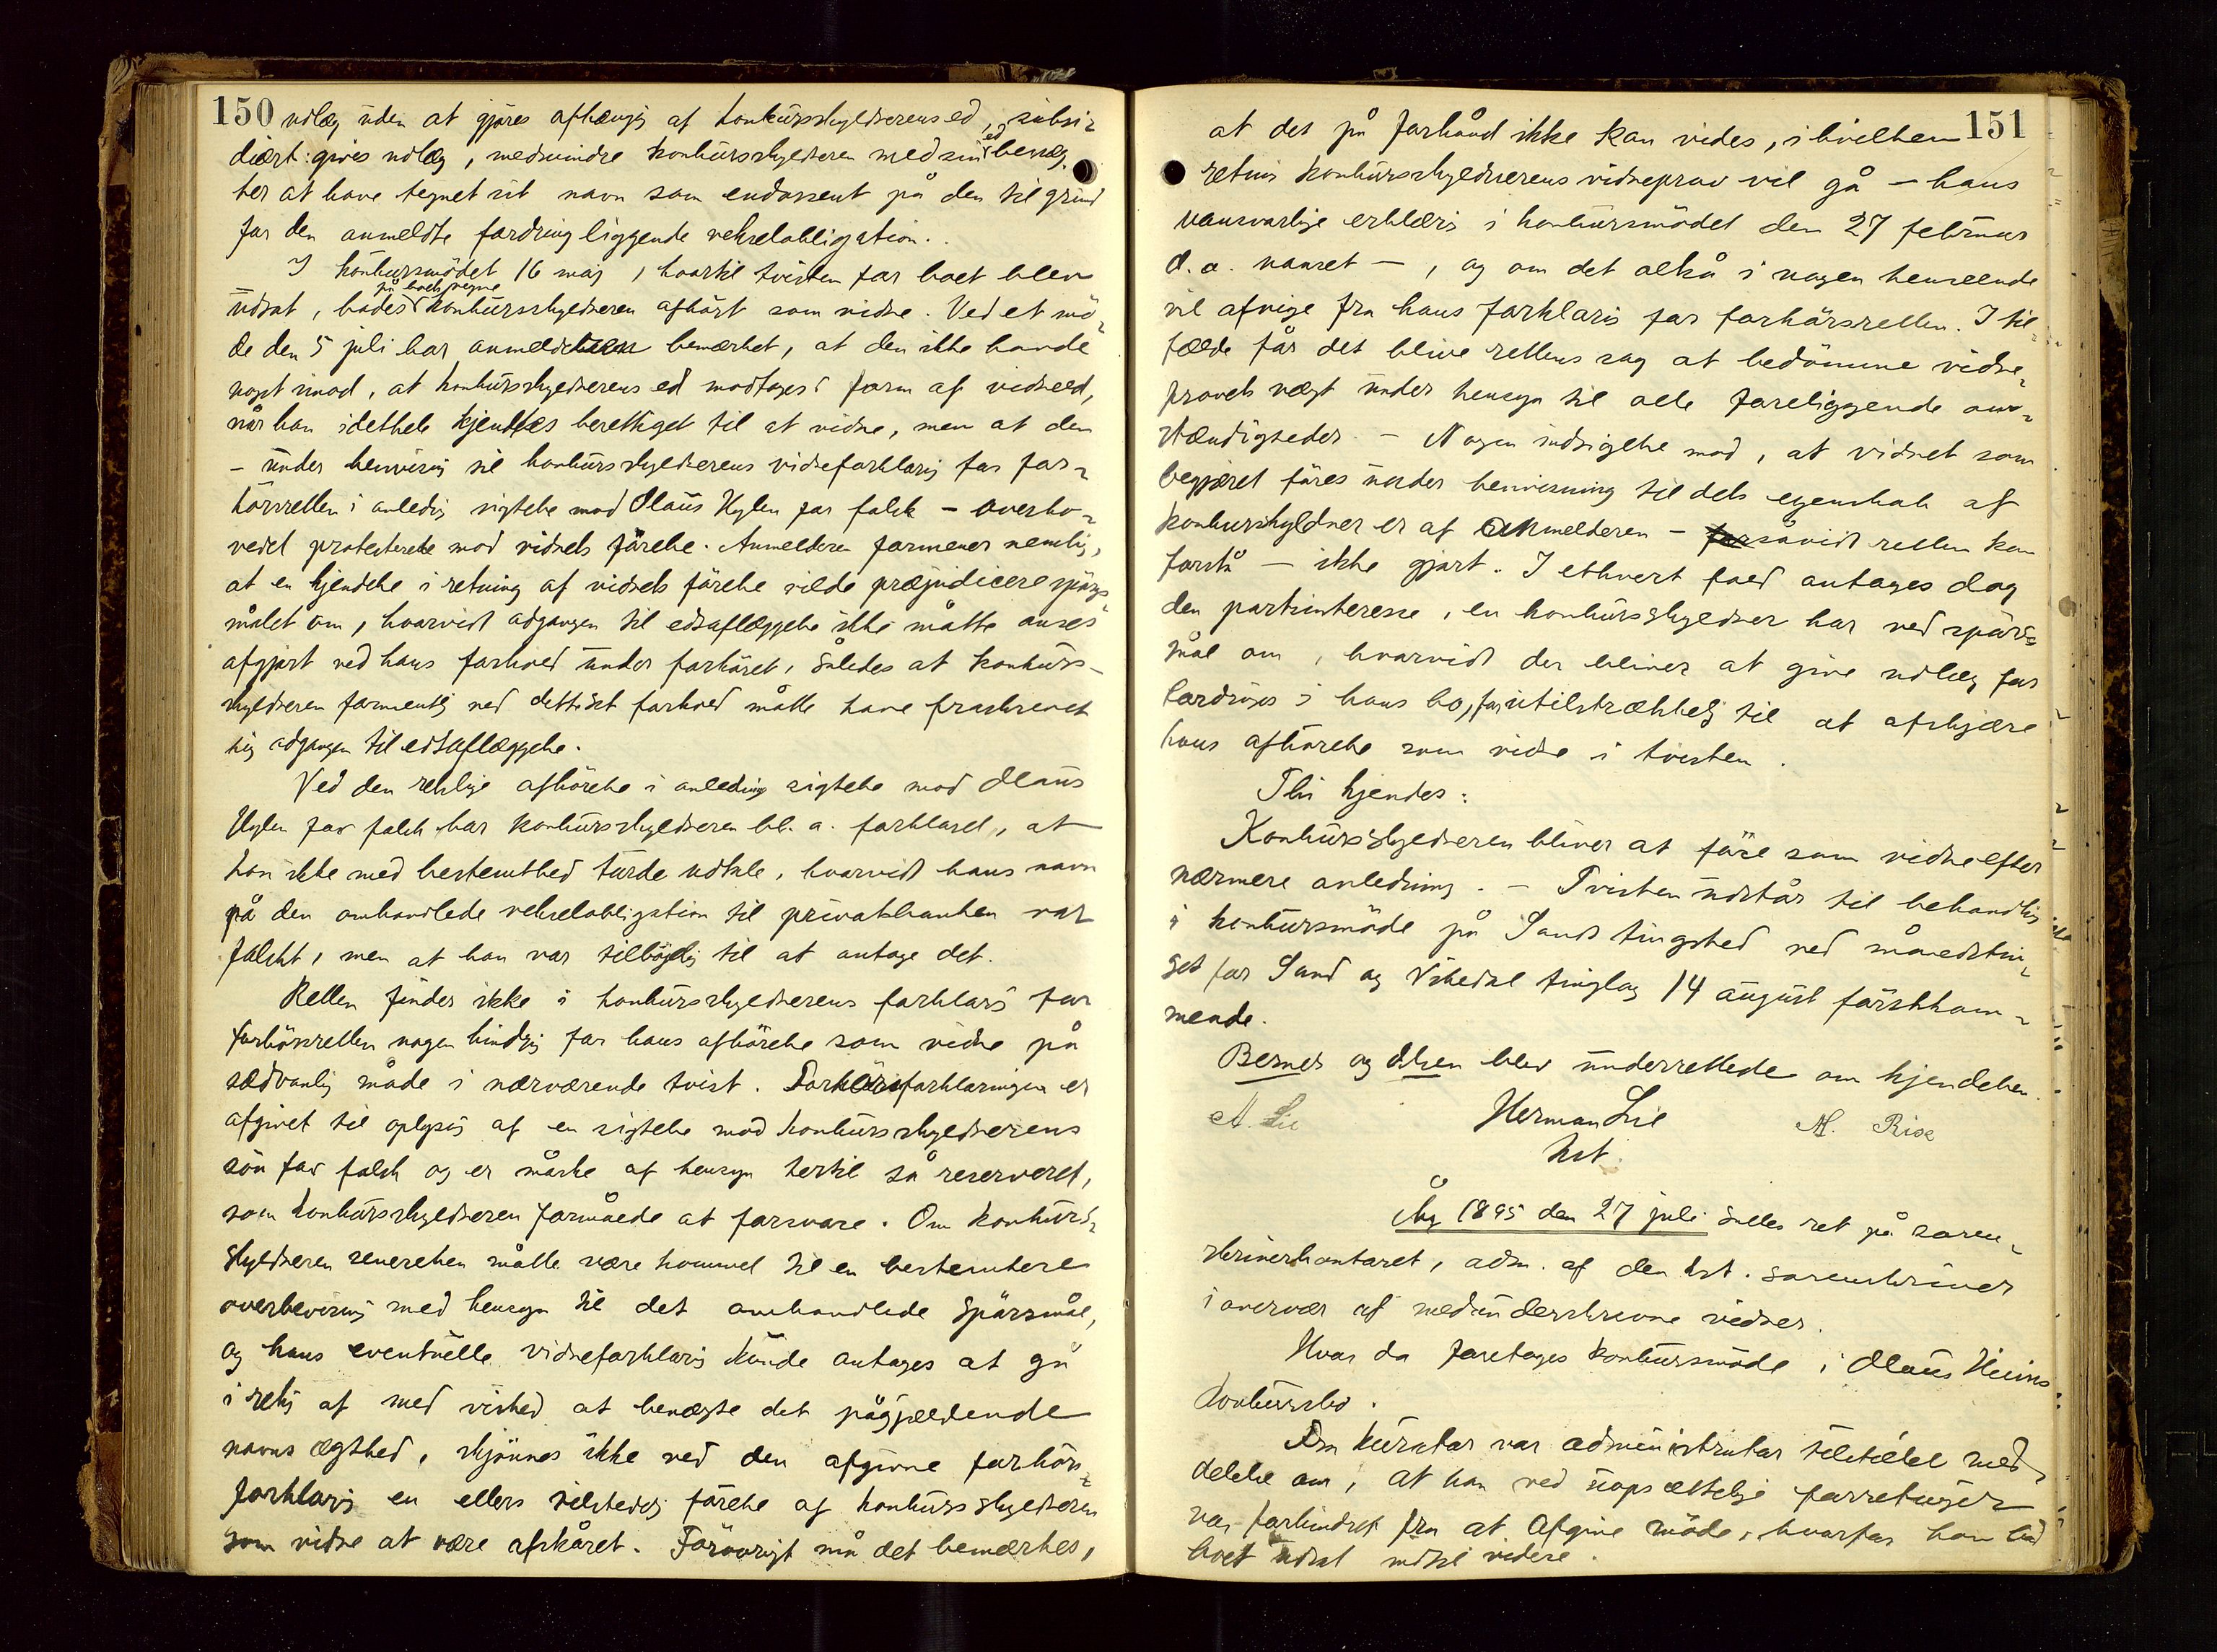 150 udlæg uden at gjöres afhængig af konkursskyldnerens ed, subsi-
diært: gives udlæg, medmindre konkursskyldneren med sin ed benæg-
ter at have tegnet sit navn som endossent på den til grund
for den anmeldte fordring liggende vekselobligation.
I konkursmödet 16 maj, hvortil tvisten for boet blev
udsat, bades på boets vegne konkursskyldneren afhört som vidne. Ved et mö-
de den 5 juli har anmelderen bemærket, at den ikke havde
noget imod, at konkursskyldnerens ed modtoges i form af vidneed,
når han idethele kjendtes berettiget til at vidne, men at den
- under henvisnig til konkursskyldnerens vidneforklarig for for-
hörsretten i anledig sigtelse mod Olaus Hylen for falsk - overho-
vedet protesterede mod vidnets förelse. Anmelderen formener nemlig,
at en kjendelse i retning af vidnets förelse vilde præjudicere spörgs-
målet om, hvorvidt adgangen til edsaflæggelse ikke måtte anses
afgjort ved hans forhold under forhöret, således at konkurs-
skyldneren formentlig ved dette sit forhold måtte have fraskrevet
sig adgangen til edsaflæggelse.
Ved den retslige afhörelse i anledning sigtelse mod Olaus
Hylen for falsk har konkursskyldneren bl. a. forklaret, at
han ikke med bestemthed turde udtale, hvorvidt hans navn
på den omhandlede vekselobligation til privatbanken var
falskt, men at han var tilböjelig til at antage det.
Retten finder ikke i konkursskyldnerens forklarig for
forhörsretten nogen hindrig for hans afhörelse som vidne på
sædvanlig måde i nærværende tvist. Forhörsforklaringen er
afgivet til oplysig af en sigtelse mod konkursskyldnerens
sön for falsk og er måske af hensyn hertil så reserveret,
som konkursskyldneren formåede at forsvare. Om konkurs-
skyldneren senerehen måtte være kommet til en bestemtere
overbevisnig med hensyn til det omhandlede spörsmål,
og hans eventuelle vidneforklarig kunde antages at gå
i retnig af med vished at benægte det pågjældende
navns ægthed, skjönnes ikke ved den afgivne forhörs-
forklarig en ellers vilstedes förelse af konkursskyldneren
som vidne at være afskåret. Forövrigt må det bemærkes,
151
at det på forhånd ikke kan vides, i hvilken
retnig konkursskyldnerens vidneprov vil gå - hans
uansvarlige erklærig i konkursmödet den 27 februar
d. a. uanset -, og om det altså i nogen henseende
vil afvige fra hans forklarig for forhörsretten. I til-
fælde får det blive rettens sag at bedömme vidne-
provets vægt under hensyn til alle foreliggende om-
stændigheder. - Nogen indsigelse mod, at vidnet som
begjæret föres under henvisning til dets egenskab af
konkursskyldner er af anmelderen - såvidt retten kan
forstå - ikke gjort. I ethvert fald antages dog
den partsinteresse, en konkursskyldner har ved spörs-
mål om, hvorvidt der bliver at give udlæg for
fordriger i hans bo, for utilstrækkelig til at afskjære
hans afhörelse som vidne i tvisten.
Thi kjendes:
Konkursskyldneren bliver at före som vidne efter
nærmere anledning. - Tvisten udstår til behandlig
i konkursmöde på Sands tingsted ved månedstin-
get for Sand og Vikedal tinglag 14 august förstkom-
mende.
Berner og Olsen blev underrettede om kjendelsen.
A. Lie Herman Lie M. Rise
kst.
År 1895 den 27 juli sattes ret på soren-
skriverkontoret, adm. af den kst. sorenskriver
i overvær af medunderskrevne vidner.
Hvor da foretoges konkursmöde i Olaus
konkursbo.
Fra kurator var administrator tilstillet med-
delelse om, at han ved uopsættelige forretniger
var forhindret fra at afgive möde, hvorfor han bad
boet udsat indtil videre.